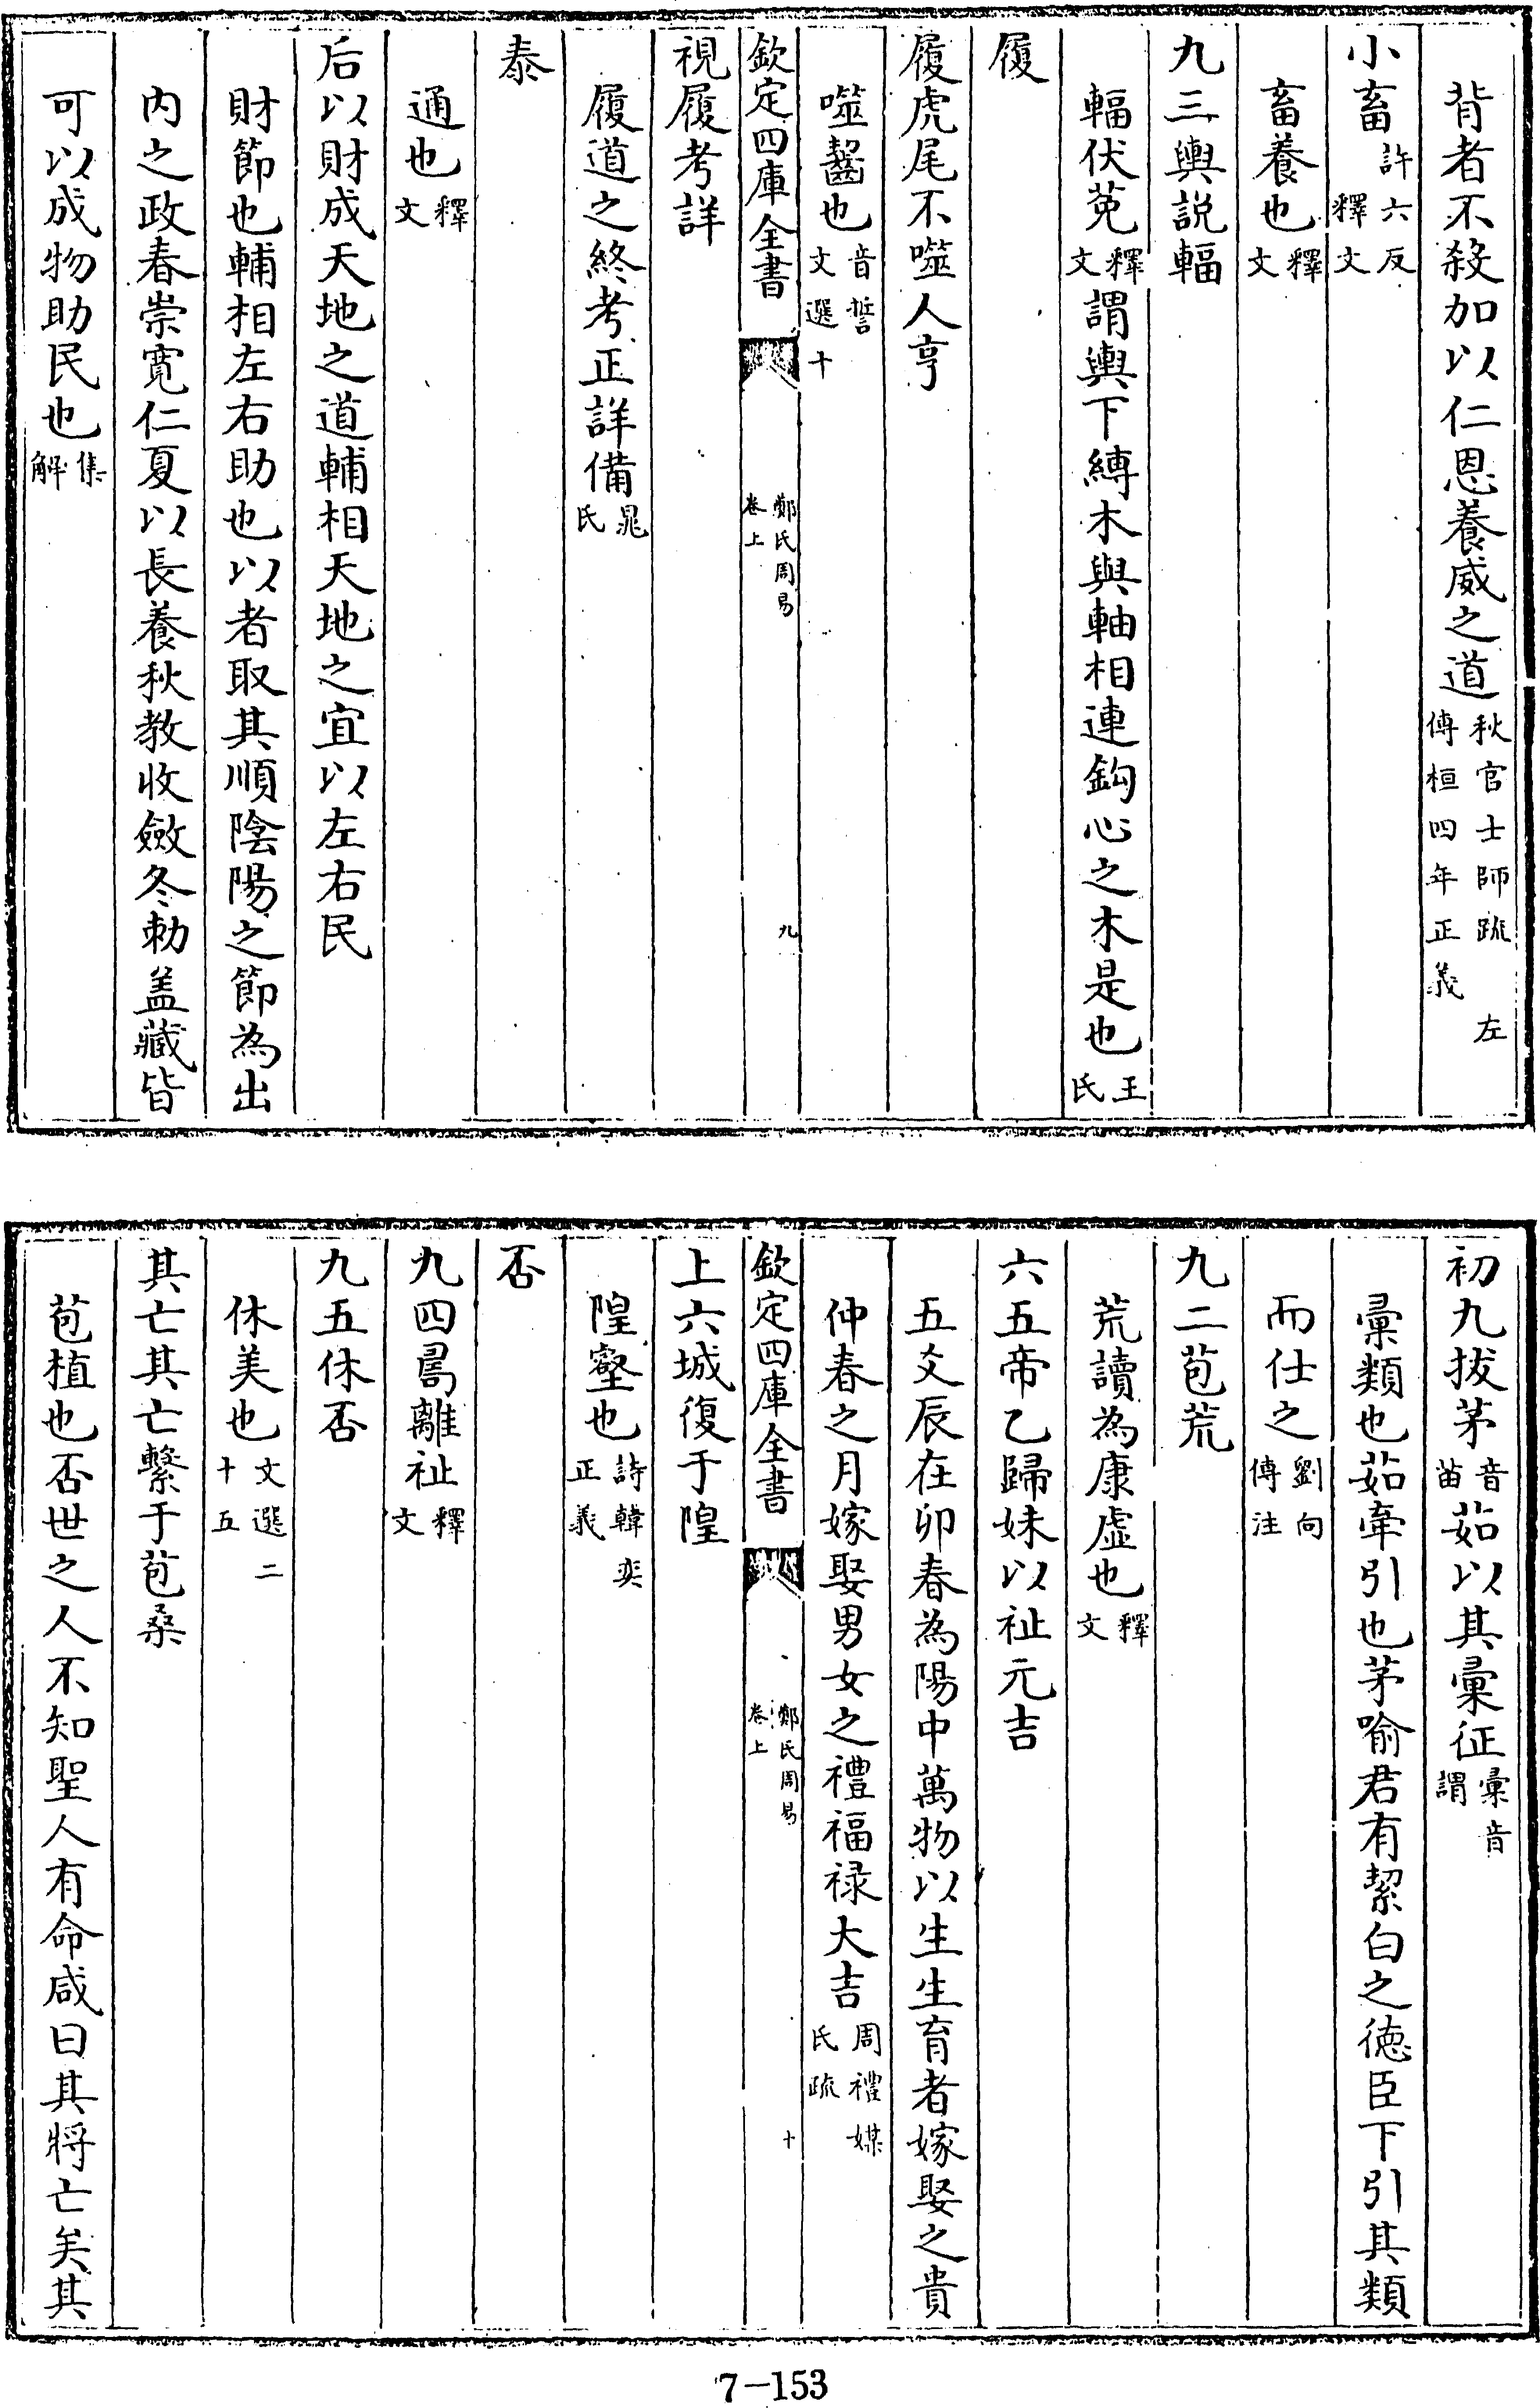 背者不殺加以仁恩養威之道秋官士師疏　左傳桓四年正義
小畜許六反釋文
畜養也釋文
九三輿説輻
輻伏菟釋文謂輿下縛木與軸相連鈎心之木是也王氏
履
履虎尾不噬人亨
噬齧也音誓文選十
欽定四庫全書　鄭氏周易卷上　九
視履考詳
履道之終考正詳備晁氏
泰
通也釋文
后以財成天地之道輔相天地之宜以左右民
財節也輔相左右助也以者取其順陰陽之節為出
内之政春崇寛仁夏以長養秋教收斂冬勅盖藏皆
可以成物助民也集解
初九拔茅音苗茹以其彚征彚音謂
彚類也茹牽引也茅喻君有絜白之德臣下引其類
而仕之劉向傳注
九二苞荒
荒讀為康虚也釋文
六五帝乙歸妹以祉元吉
五爻辰在卯春為陽中萬物以生生育者嫁娶之貴
仲春之月嫁娶男女之禮福禄大吉周禮媒氏疏
欽定四庫全書　鄭氏周易卷上　十
上六城復于隍
隍壑也詩韓奕正義
否
九四𠷎離祉釋文
九五休否
休美也文選二十五
其亡其亡繫于苞桑
苞植也否世之人不知聖人有命咸曰其將亡矣其
7-153